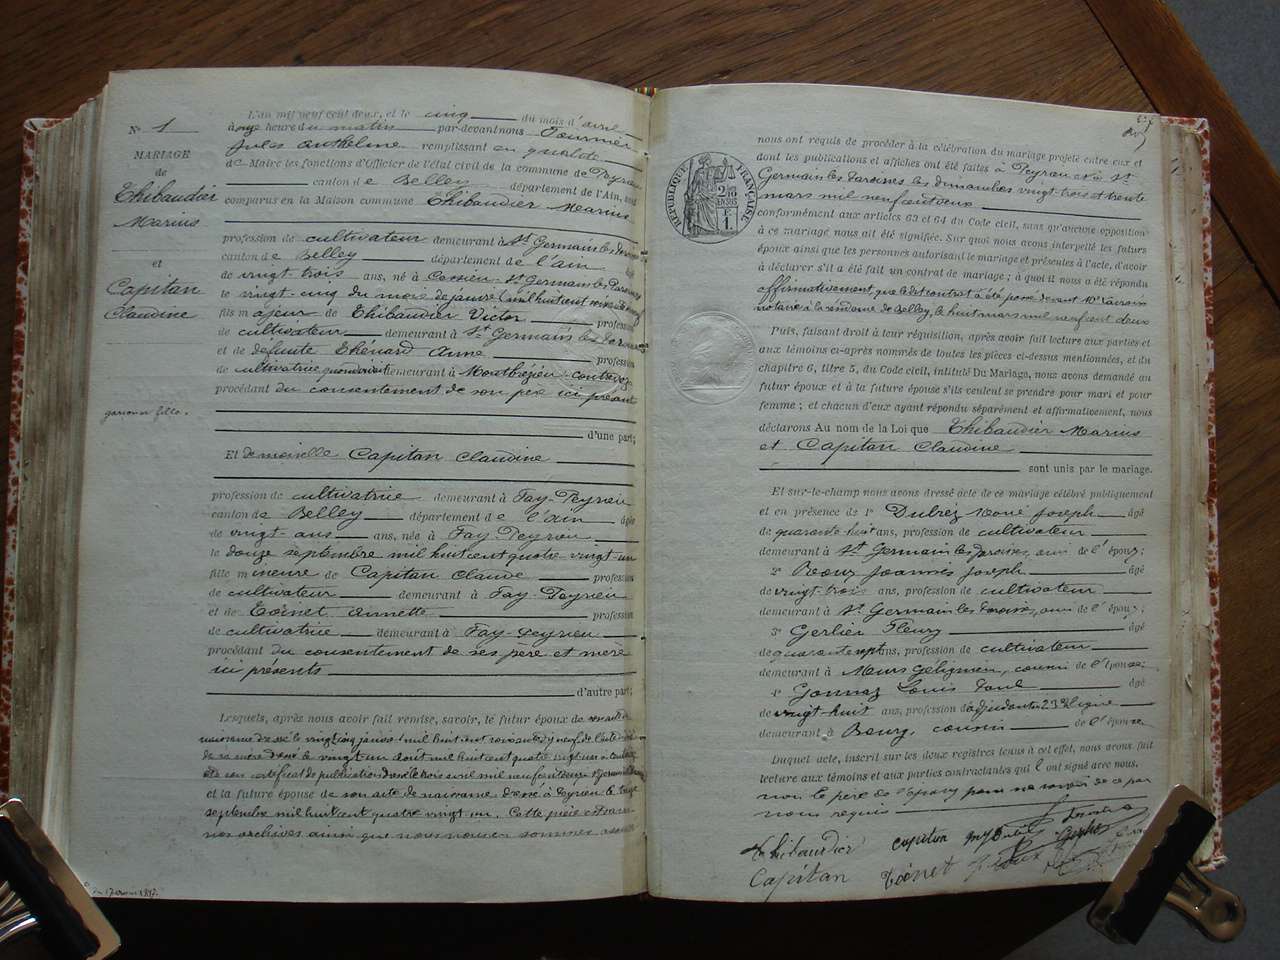 Nº 1
MARIAGE
de
Thibaudier
Marius
et
Capitan
Claudine
garçon et fille.
L'an mil neuf cent deux, et le cinq du mois d'avril
à onze heure du matin par-devant nous Fournier
Jules Anthelme remplissant en qualité
de Maire les fonctions d'Officier de l'état civil de la commune de Peyrieu
canton de Belley département de l'Ain, sont
comparus en la Maison commune Thibaudier Marius
profession de cultivateur demeurant à St Germain les Paroisses
canton de Belley département de l'ain âgé
de vingt trois ans, né à St Germain les Paroisses
le vingt-cinq du mois de janvier mil huit cent
fils majeur de Thibaudier Victor profession
de cultivateur demeurant à St Germain les Paroisses
et de défunte Thénard Anne profession
de cultivatrice quand vivait demeurant à
procédant du consentement de son père ici présent
d'une part;
Et demoiselle Capitan Claudine
profession de cultivatrice demeurant à Fay-Peyrieu
canton de Belley département de l'Ain âgée
de vingt ans ans, née à Fay Peyrieu
le douze septembre mil huit cent quatre vingt un
fille mineure de Capitan Claude profession
de cultivateur demeurant à Fay-Peyrieu
et de Toënet Annette profession
de cultivatrice demeurant à Fay-Peyrieu
procédant du consentement de ses père et mère
ici présents
d'autre part;
Lesquels, après nous avoir fait remise, savoir, le futur époux de son acte de
naissance dressé le vingt cinq janvier mil huit cent soixante dix neuf de l'acte de
de sa mère dressé le vingt un août mil huit cent quatre vingt
et son certificat de publication dressé le trois avril mil neuf cent deux à St Germain
et la future épouse de son acte de naissance dressé à Peyrieu le
septembre mil huit cent quatre vingt un. Cette pièce
nos archives ainsi que nous nous en sommes assuré
nous ont requis de procéder à la célébration du mariage projeté entre eux et
dont les publications et affiches ont été faites à Peyrieu et à St
Germain les Paroisses les dimanches vingt trois et trente
mars mil neuf cent deux
conformément aux articles 63 et 64 du Code civil, sans qu'aucune opposition
à ce mariage nous ait été signifiée. Sur quoi nous avons interpellé les futurs
époux ainsi que les personnes autorisant le mariage et présentes à l'acte, d'avoir
à déclarer s'il a été fait un contrat de mariage; à quoi il nous a été répondu
affirmativement, que le dit contrat a été passé devant Me
notaire à la résidence de Belley, le huit mars mil neuf cent deux
Puis, faisant droit à leur réquisition, après avoir fait lecture aux parties et
aux témoins ci-après nommés de toutes les pièces ci-dessus mentionnées, et du
chapitre 6, titre 5, du Code civil, intitulé Du Mariage, nous avons demandé au
futur époux et à la future épouse s'ils veulent se prendre pour mari et pour
femme; et chacun d'eux ayant répondu séparément et affirmativement, nous
déclarons Au nom de la Loi que Thibaudier Marius
et Capitan Claudine
sont unis par le mariage.
Et sur-le-champ nous avons dressé acte de ce mariage célébré publiquement
et en présence de 1º Dubrez Noué Joseph âgé
de quarante huit ans, profession de cultivateur
demeurant à St Germain les Paroisses, ami de l'époux;
2º Roux Joannès Joseph âgé
de vingt trois ans, profession de cultivateur
demeurant à St Germain les Paroisses, ami de l'époux;
3º Gerlier Fleury âgé
de quarante sept ans, profession de cultivateur
demeurant à Murs Gélignieu, cousin de l'Epouse;
4º Gonnaz Louis Paul âgé
de vingt-huit ans, profession d'adjudant au 23e ligne
demeurant à Bourg, cousin de l'épouse
Duquel acte, inscrit sur les deux registres tenus à cet effet, nous avons fait
lecture aux témoins et aux parties contractantes qui l'ont signé avec nous.
non le père de l'époux pour ne savoir de ce par
nous requis
Thibaudier capitan
Capitan Toënet Roux
RÉPUBLIQUE FRANÇAISE